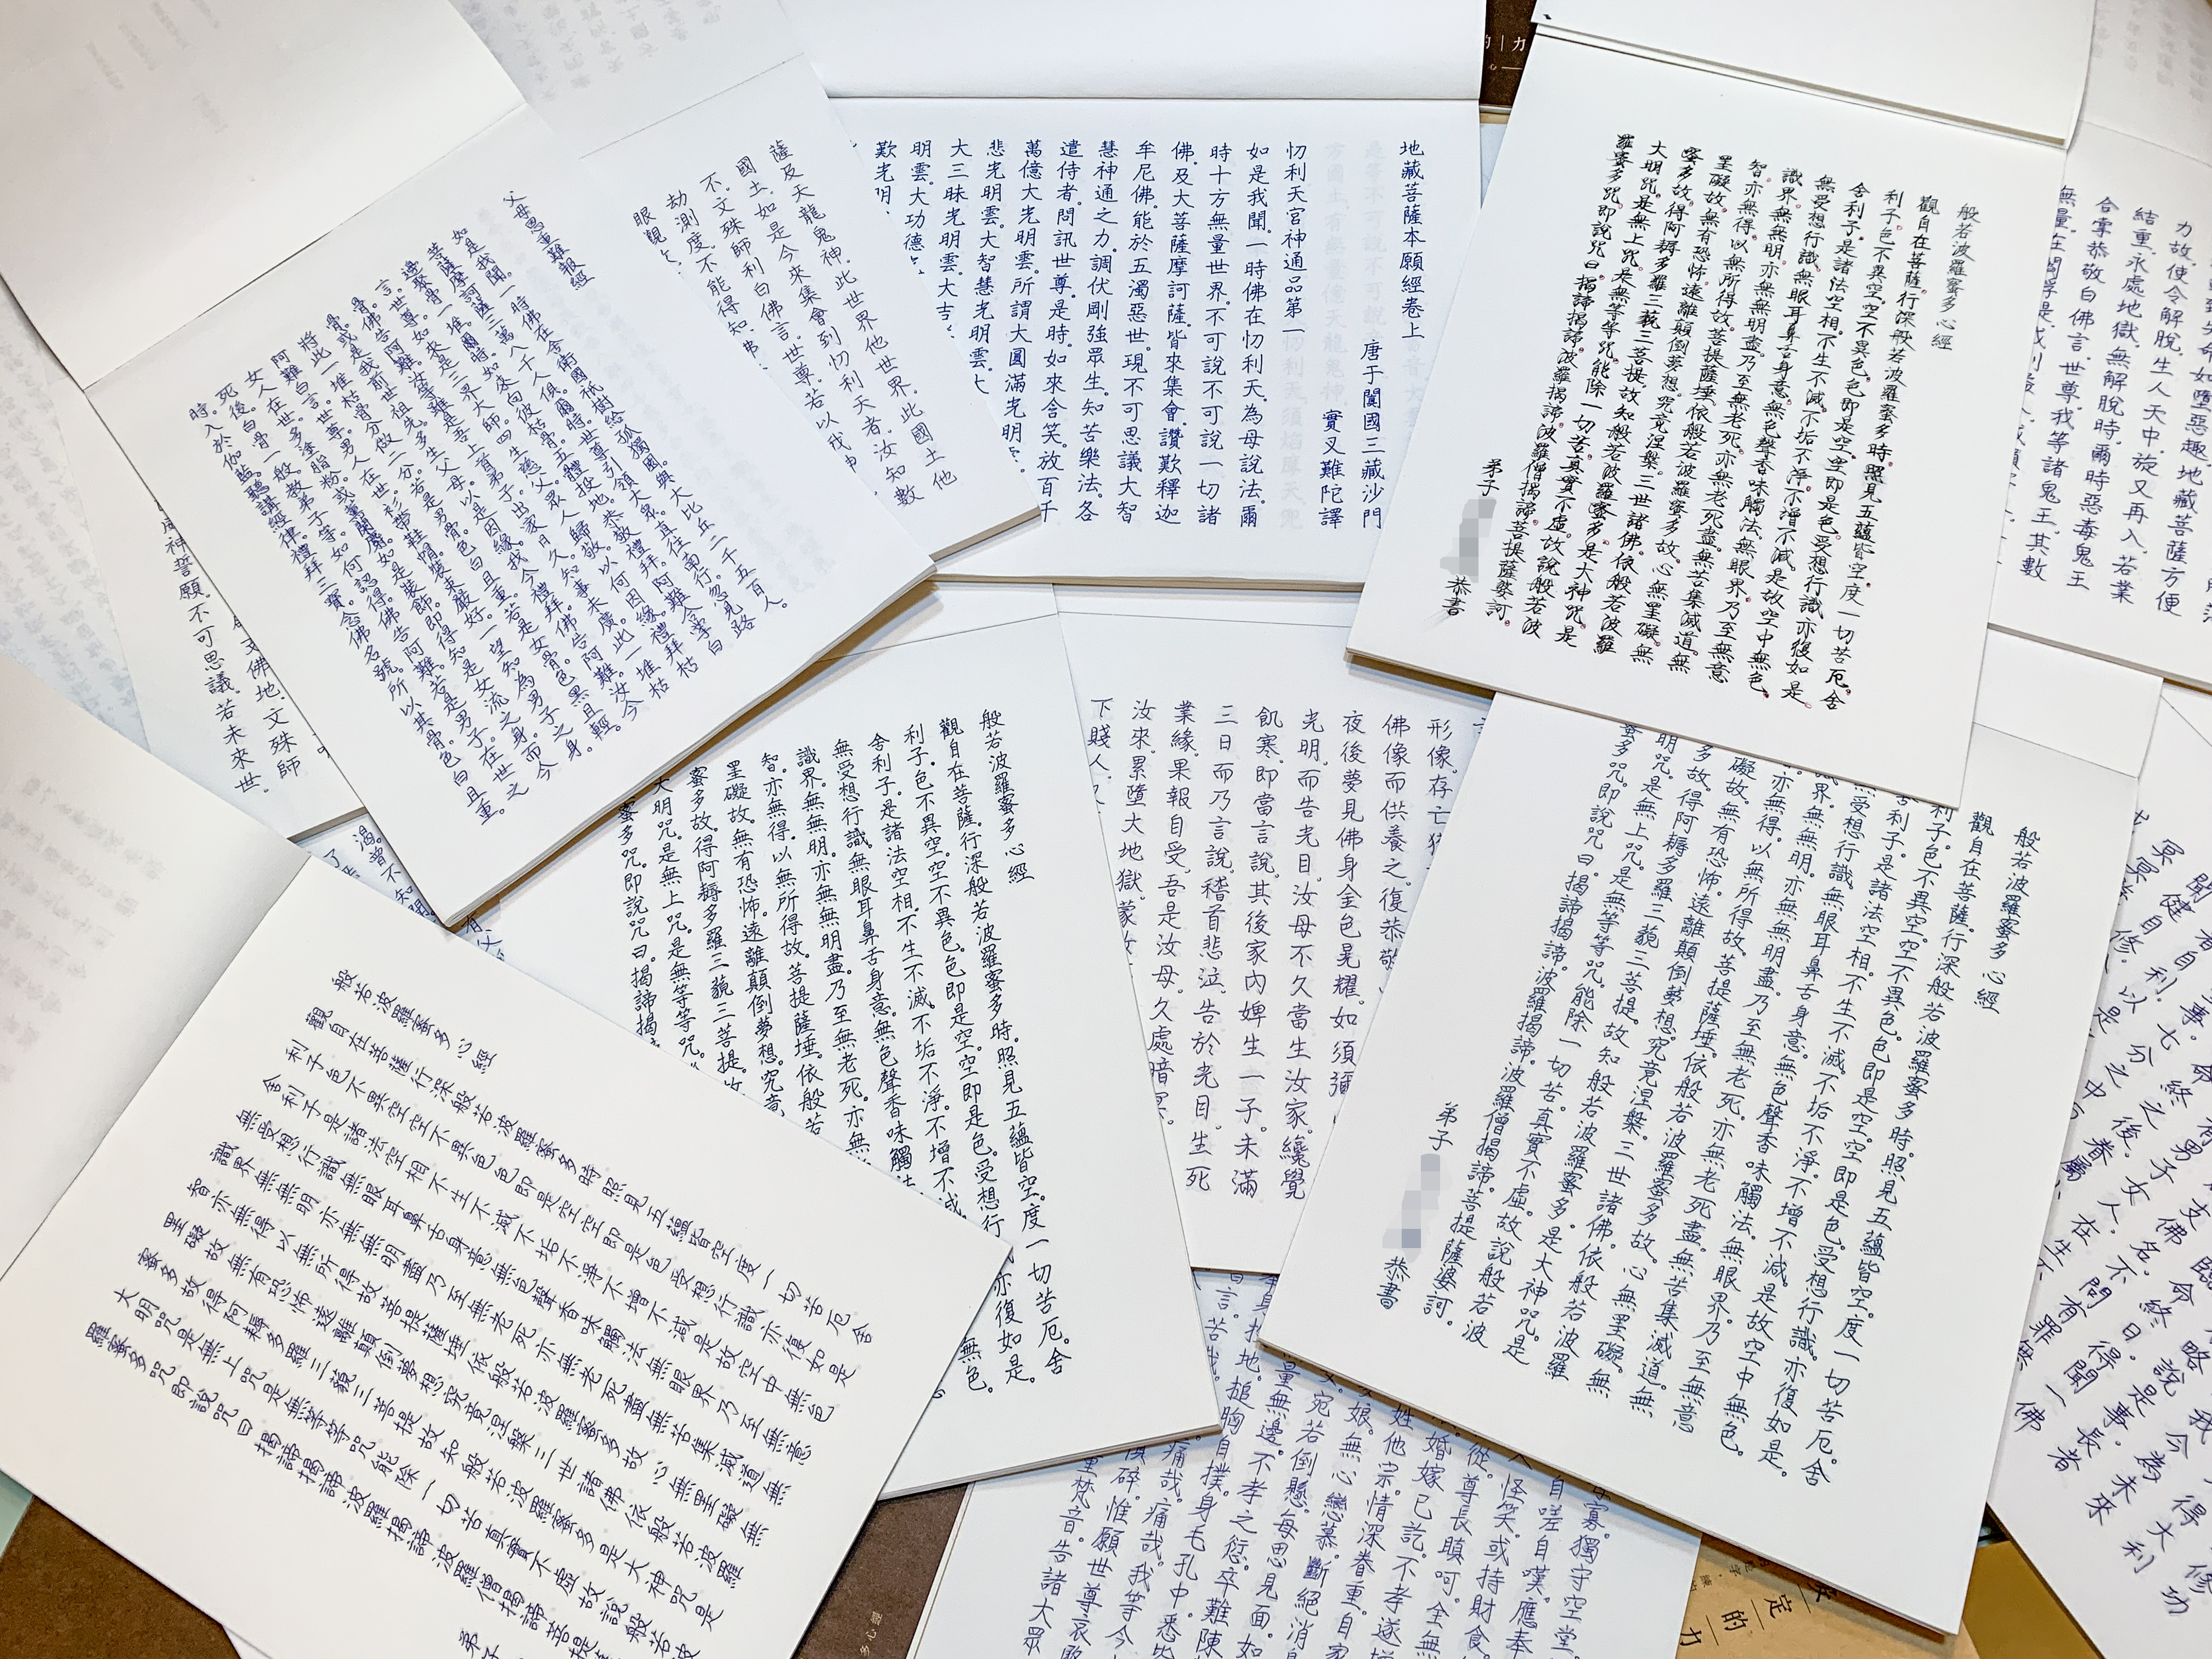 力故。使令解脫。生人天中。旋又再入。若業
結重。永處地獄。無解脫時。爾時惡毒鬼王
合掌恭敬白佛言。世尊。我等諸鬼王。其數
般若波羅蜜多心經
觀自在菩薩。行深般若波羅蜜多時。照見五蘊皆空。度一切苦厄。舍
利子。色不異空。空不異色。色即是空。空即是色。受想行識。亦復如是。
舍利子。是諸法空相。不生不滅。不垢不淨。不增不減。是故空中無色。
無受想行識。無眼耳鼻舌身意。無色聲香味觸法。無眼界。乃至無意
識界。無無明。亦無無明盡。乃至無老死。亦無老死盡。無苦集滅道。無
智亦無得。以無所得故。菩提薩埵。依般若波羅蜜多故。心無罣礙。無
罣礙故。無有恐怖。遠離顛倒夢想。究竟涅槃。三世諸佛。依般若波羅
蜜多故。得阿耨多羅三藐三菩提。故知般若波羅蜜多。是大神咒。是
大明咒。是無上咒。是無等等咒。能除一切苦。真實不虛。故說般若波
羅蜜多咒。即說咒曰。揭諦揭諦。波羅揭諦。波羅僧揭諦。菩提薩婆訶。
弟子 恭書
地藏菩薩本願經卷上
唐于闐國三藏沙門
實叉難陀譯
忉利天宮神通品第一
如是我聞。一時佛在忉利天。為母說法。爾
時十方無量世界。不可說不可說一切諸
佛。及大菩薩摩訶薩。皆來集會。讚歎釋迦
牟尼佛。能於五濁惡世。現不可思議大智
慧神通之力。調伏剛強眾生。知苦樂法。各
遣侍者。問訊世尊。是時。如來含笑。放百千
萬億大光明雲。所謂大圓滿光明
悲光明雲。大智慧光明雲。大
大三昧光明雲。大吉
明雲。大功德
歎光明
薩及天龍鬼神。此世界他世界。此國土他
國土。如是今來集會到忉利天者。汝知數
不。文殊師利白佛言。世尊。若以我神
劫測度。不能得知。佛
眼觀
父母恩重難報經
如是我聞。一時佛在舍衛國祇樹給孤獨園。與大比丘二千五百人。
菩薩摩訶薩三萬八千人俱。爾時。世尊引領大眾。直往南行。忽見路
邊聚骨一堆。爾時。如來向彼枯骨。五體投地。恭敬禮拜。阿難合掌白
言。世尊。如來是三界大師。四生慈父。眾人歸敬。以何因緣。禮拜枯
骨。佛告阿難。汝等雖是吾上首弟子。出家日久。知事未廣。此一堆枯
骨。或是我前世祖先。多生父母。以是因緣。我今禮拜。佛告阿難。汝今
將此一堆枯骨分做二分。若是男骨。色白且重。若是女骨。色黑且輕。
阿難白言。世尊。男人在世。衫帶鞋帽。裝束嚴好。一望知為男子之身。
女人在世。多塗脂粉。或薰蘭麝。如是裝飾。即得知是女流之身。而今
死後。白骨一般。教弟子等。如何認得。佛告阿難。若是男子。在世之
時。入於伽藍。聽講經律。禮拜三寶。念佛名號。所以其骨色白且重。
支佛地。文殊師
威神誓願。不可思議。若未來世。
般若波羅蜜多心經
觀自在菩薩。行深般若波羅蜜多時。照見五蘊皆空。度一切苦厄。舍
利子。色不異空。空不異色。色即是空。空即是色。受想行識。亦復如是。
舍利子。是諸法空相。不生不滅。不垢不淨。不增不減。是故空中無色。
無受想行識。無眼耳鼻舌身意。無色聲香味觸法。無眼界。乃至無意
識界。無無明。亦無無明盡。乃至無老死。亦無老死盡。無苦集滅道。無
亦無得。以無所得故。菩提薩埵。依般若波羅蜜多故。心無罣礙。無
礙故。無有恐怖。遠離顛倒夢想。究竟涅槃。三世諸佛。依般若波羅
多故。得阿耨多羅三藐三菩提。故知般若波羅蜜多。是大神咒。是
明咒。是無上咒。是無等等咒。能除一切苦。真實不虛。故說般若波
蜜多咒。即說咒曰。揭諦揭諦。波羅揭諦。波羅僧揭諦。菩提薩婆訶。
弟子 恭書
形像。存亡
佛像而供養之。復恭敬
夜後。夢見佛身金色晃耀。如須彌
光明。而告光目。汝母不久當生汝家。纔覺
飢寒。即當言說。其後家內婢生一子。未滿
三日。而乃言說。稽首悲泣。告於光目。生死
業緣。果報自受。吾是汝母。久處暗冥。
汝來。累墮大地獄。蒙汝
下賤人。
般若波羅蜜多心經
觀自在菩薩。行深般若波羅蜜多時。照見五蘊皆空。度一切苦厄。舍
利子。色不異空。空不異色。色即是空。空即是色。受想行 亦復如是。
舍利子。是諸法空相。不生不滅。不垢不淨。不增不減 無色。
無受想行識。無眼耳鼻舌身意。無色聲香味觸法
識界。無無明。亦無無明盡。乃至無老死。亦無
智亦無得。以無所得故。菩提薩埵。依般若
罣礙故。無有恐怖。遠離顛倒夢想。究竟
蜜多故。得阿耨多羅三藐三菩提。故
大明咒。是無上咒。是無等等咒。
蜜多咒。即說咒曰。揭諦揭
般若波羅蜜多心經
觀自在菩薩行深般若波羅蜜多時照見五蘊皆空度一切苦厄舍
利子色不異空空不異色色即是空空即是色受想行識亦復如是
舍利子是諸法空相不生不滅不垢不淨不增不減是故空中無色
無受想行識無眼耳鼻舌身意無色聲香味觸法無眼界乃至無意
識界無無明亦無無明盡乃至無老死亦無老死盡無苦集滅道無
智亦無得以無所得故菩提薩埵依般若波羅蜜多故心無罣礙無
罣礙故無有恐怖遠離顛倒夢想究竟涅槃三世諸佛依般若波羅
蜜多故得阿耨多羅三藐三菩提故知般若波羅蜜多是大神咒是
大明咒是無上咒是無等等咒能除一切苦真實不虛故說般若波
羅蜜多咒即說咒曰揭諦揭諦波羅揭諦波羅僧揭諦菩提薩
弟子
寡。獨守空堂。
自嗟自嘆。應奉
怪笑。或持財食。
從。尊長瞋呵。全無
婚嫁已訖。不孝遂增
姓他宗。情深眷重。自家
娘。無心戀慕。斷絕消息
宛若倒懸。每思見面。如
量無邊。不孝之愆。卒難陳
身投地。搥胸自撲。身毛孔中。悉皆
言。苦哉。痛哉。痛哉。我等今
俱碎。惟願世尊哀愍
重梵音。告諸大眾
多心經
定的力